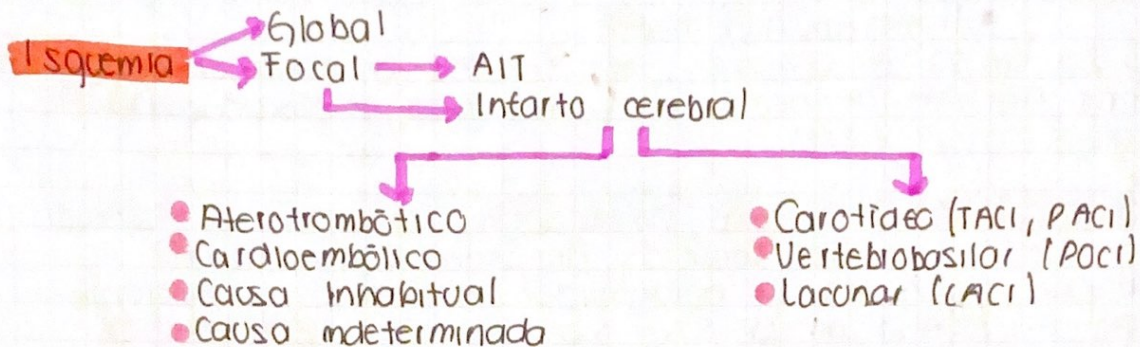 Isquemia
Global
Focal
AIT
Infarto cerebral
Aterotrombótico
Cardioembólico
Causa Inhabitual
Causa indeterminada
Carotídeo (TACI, PACI)
Vertebrobasilar (POCI)
Lacunar (LACI)